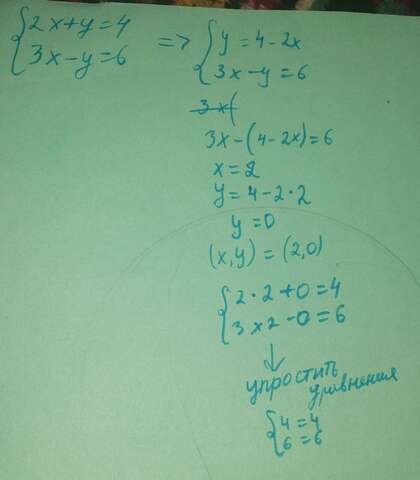 {2x+y=4 => {y=4-2x
{3x-y=6 {3x-y=6
3x(
3x-(4-2x)=6
x=2
y=4-2·2
y=0
(x,y)=(2,0)
{2·2+0=4
{3x2-0=6
↓
упростить
уравнения
{4=4
{6=6